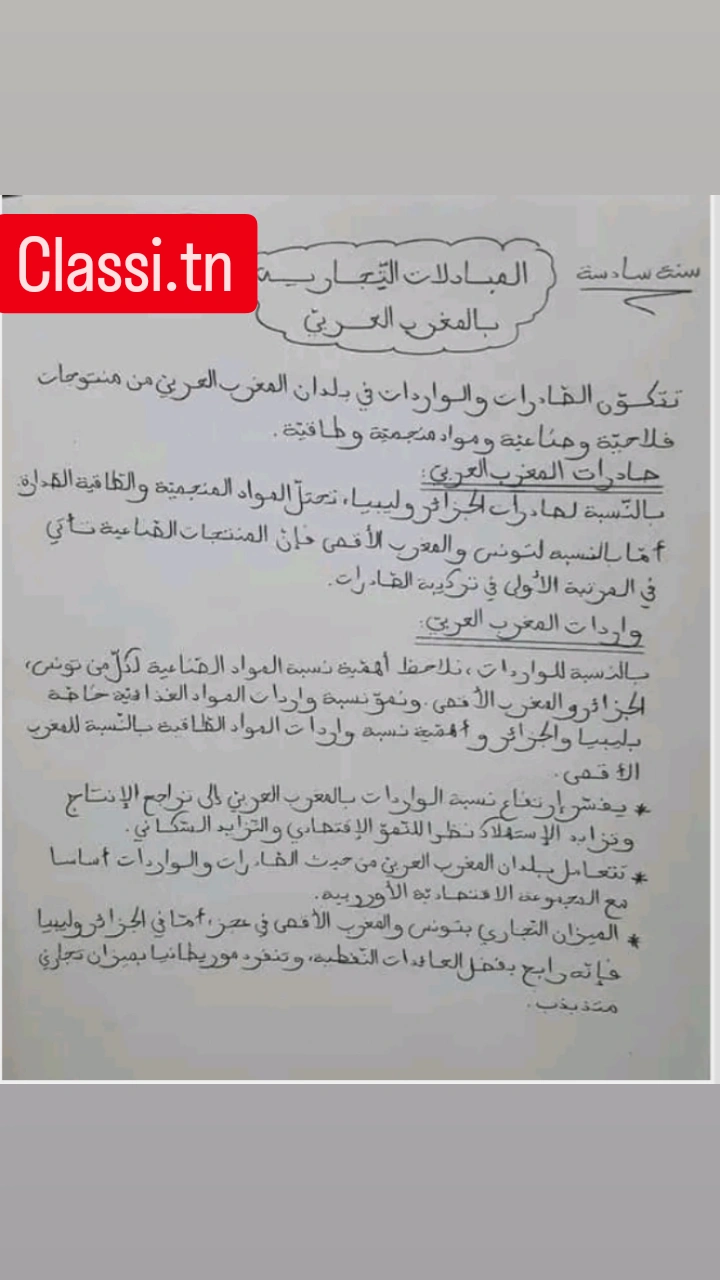 Classi.tn
سنة سادسة
المبادلات التّجاريـة
بالمغرب العـربيّ
تتكـوّن الصّادرات والـواردات في بلدان المغرب العربيّ من منتوجات
فلاحيّة وصناعيّة ومواد منجميّة وطاقيّة.
صادرات المغرب العربي:
بالنّسبة لصادرات الجزائر وليبيا، تحتلّ المواد المنجميّة والطّاقية الصّدارة.
أمّا بالنّسبة لتونس والمغرب الأقصى فإنّ المنتجات الصّناعية تأتي
في المرتبة الأولى في تركيبة الصّادرات.
واردات المغرب العربي:
بالنّسبة للواردات، نلاحظ أهمّية نسبة المواد الصّناعية لكلّ من تونس،
الجزائر والمغرب الأقصى. ونموّ نسبة واردات المواد الغذائيّة خاصّة
بليبيا والجزائر وأهمّية نسبة واردات المواد الطّاقية بالنّسبة للمغرب
الأقصى.
* يفسّر إرتفاع نسبة الواردات بالمغرب العربيّ إلى تراجع الإنتاج
وتزايد الإستهلاك نظرا للنّموّ الإقتصادي والتّزايد السّكاني.
* تتعامل بلدان المغرب العربيّ من حيث الصّادرات والواردات أساسا
مع المجموعة الاقتصاديّة الأوروبية.
* الميزان التّجاري بتونس والمغرب الأقصى في عجز، أمّا في الجزائر وليبيا
فإنّه رابح بفضل العائدات النّفطية، وتنفرد موريطانيا بميزان تجاريّ
متذبذب.